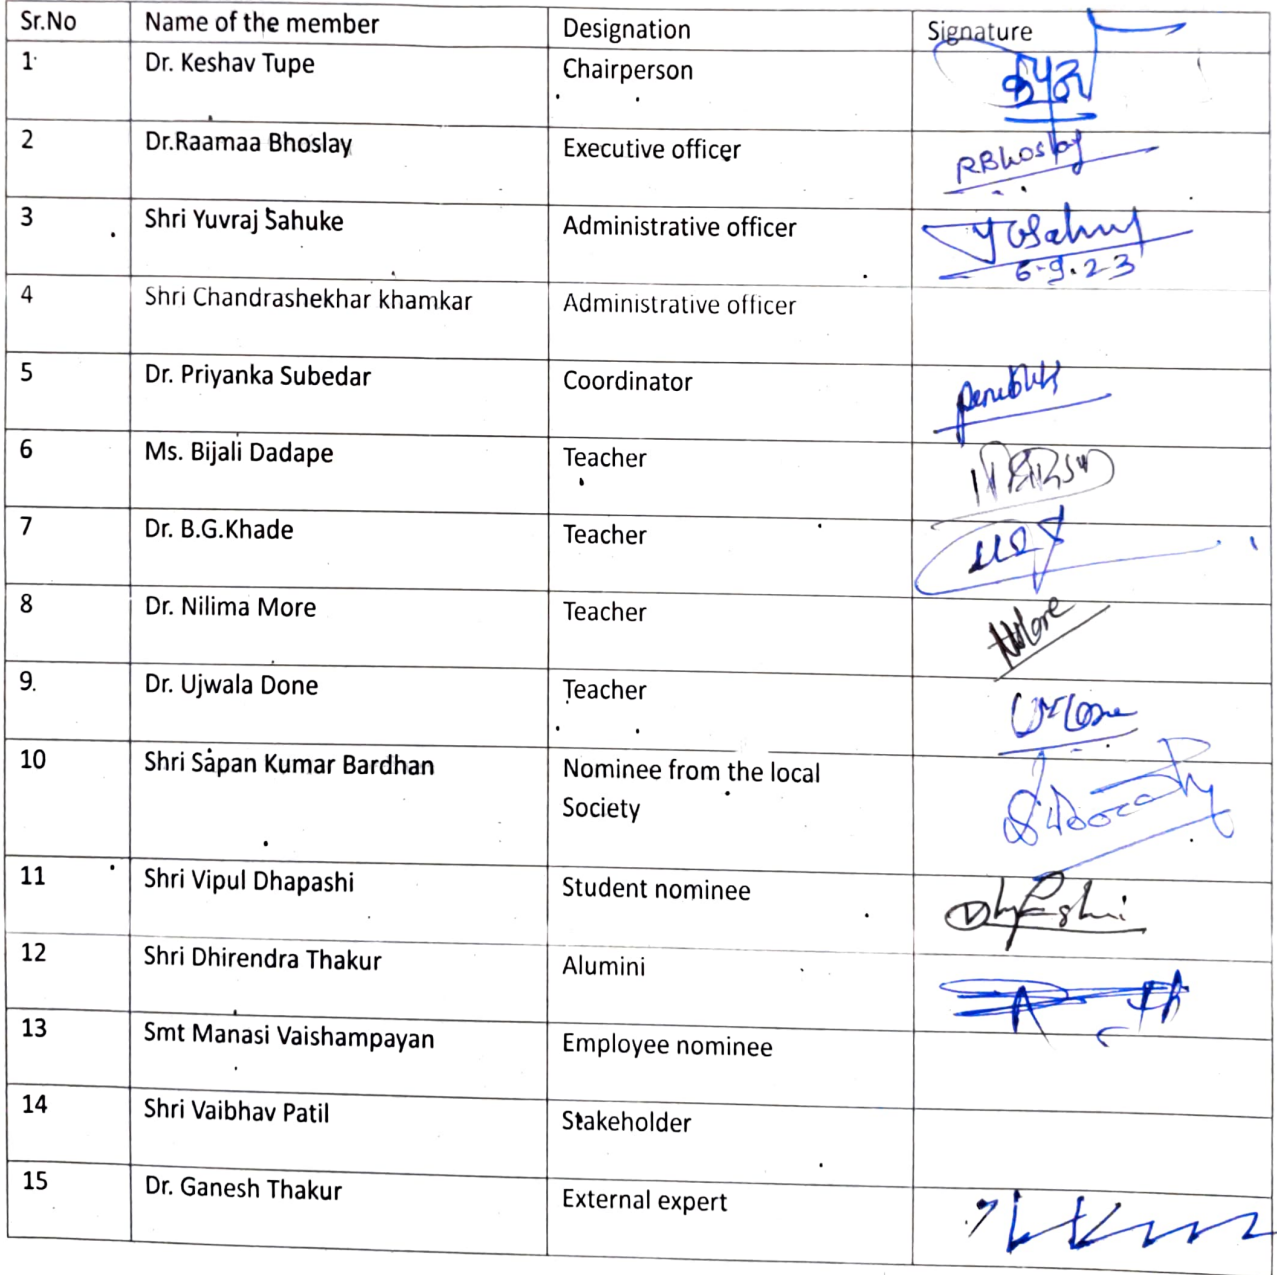 Sr.No Name of the member Designation Signature
1 Dr. Keshav Tupe Chairperson
2 Dr.Raamaa Bhoslay Executive officer RBhoslay
3 Shri Yuvraj Sahuke Administrative officer
6-9.23
4 Shri Chandrashekhar khamkar Administrative officer
5 Dr. Priyanka Subedar Coordinator
6 Ms. Bijali Dadape Teacher
7 Dr. B.G.Khade Teacher
8 Dr. Nilima More Teacher NMore
9. Dr. Ujwala Done Teacher
10 Shri Sapan Kumar Bardhan Nominee from the local
Society
11 Shri Vipul Dhapashi Student nominee
12 Shri Dhirendra Thakur Alumini
13 Smt Manasi Vaishampayan Employee nominee
14 Shri Vaibhav Patil Stakeholder
15 Dr. Ganesh Thakur External expert